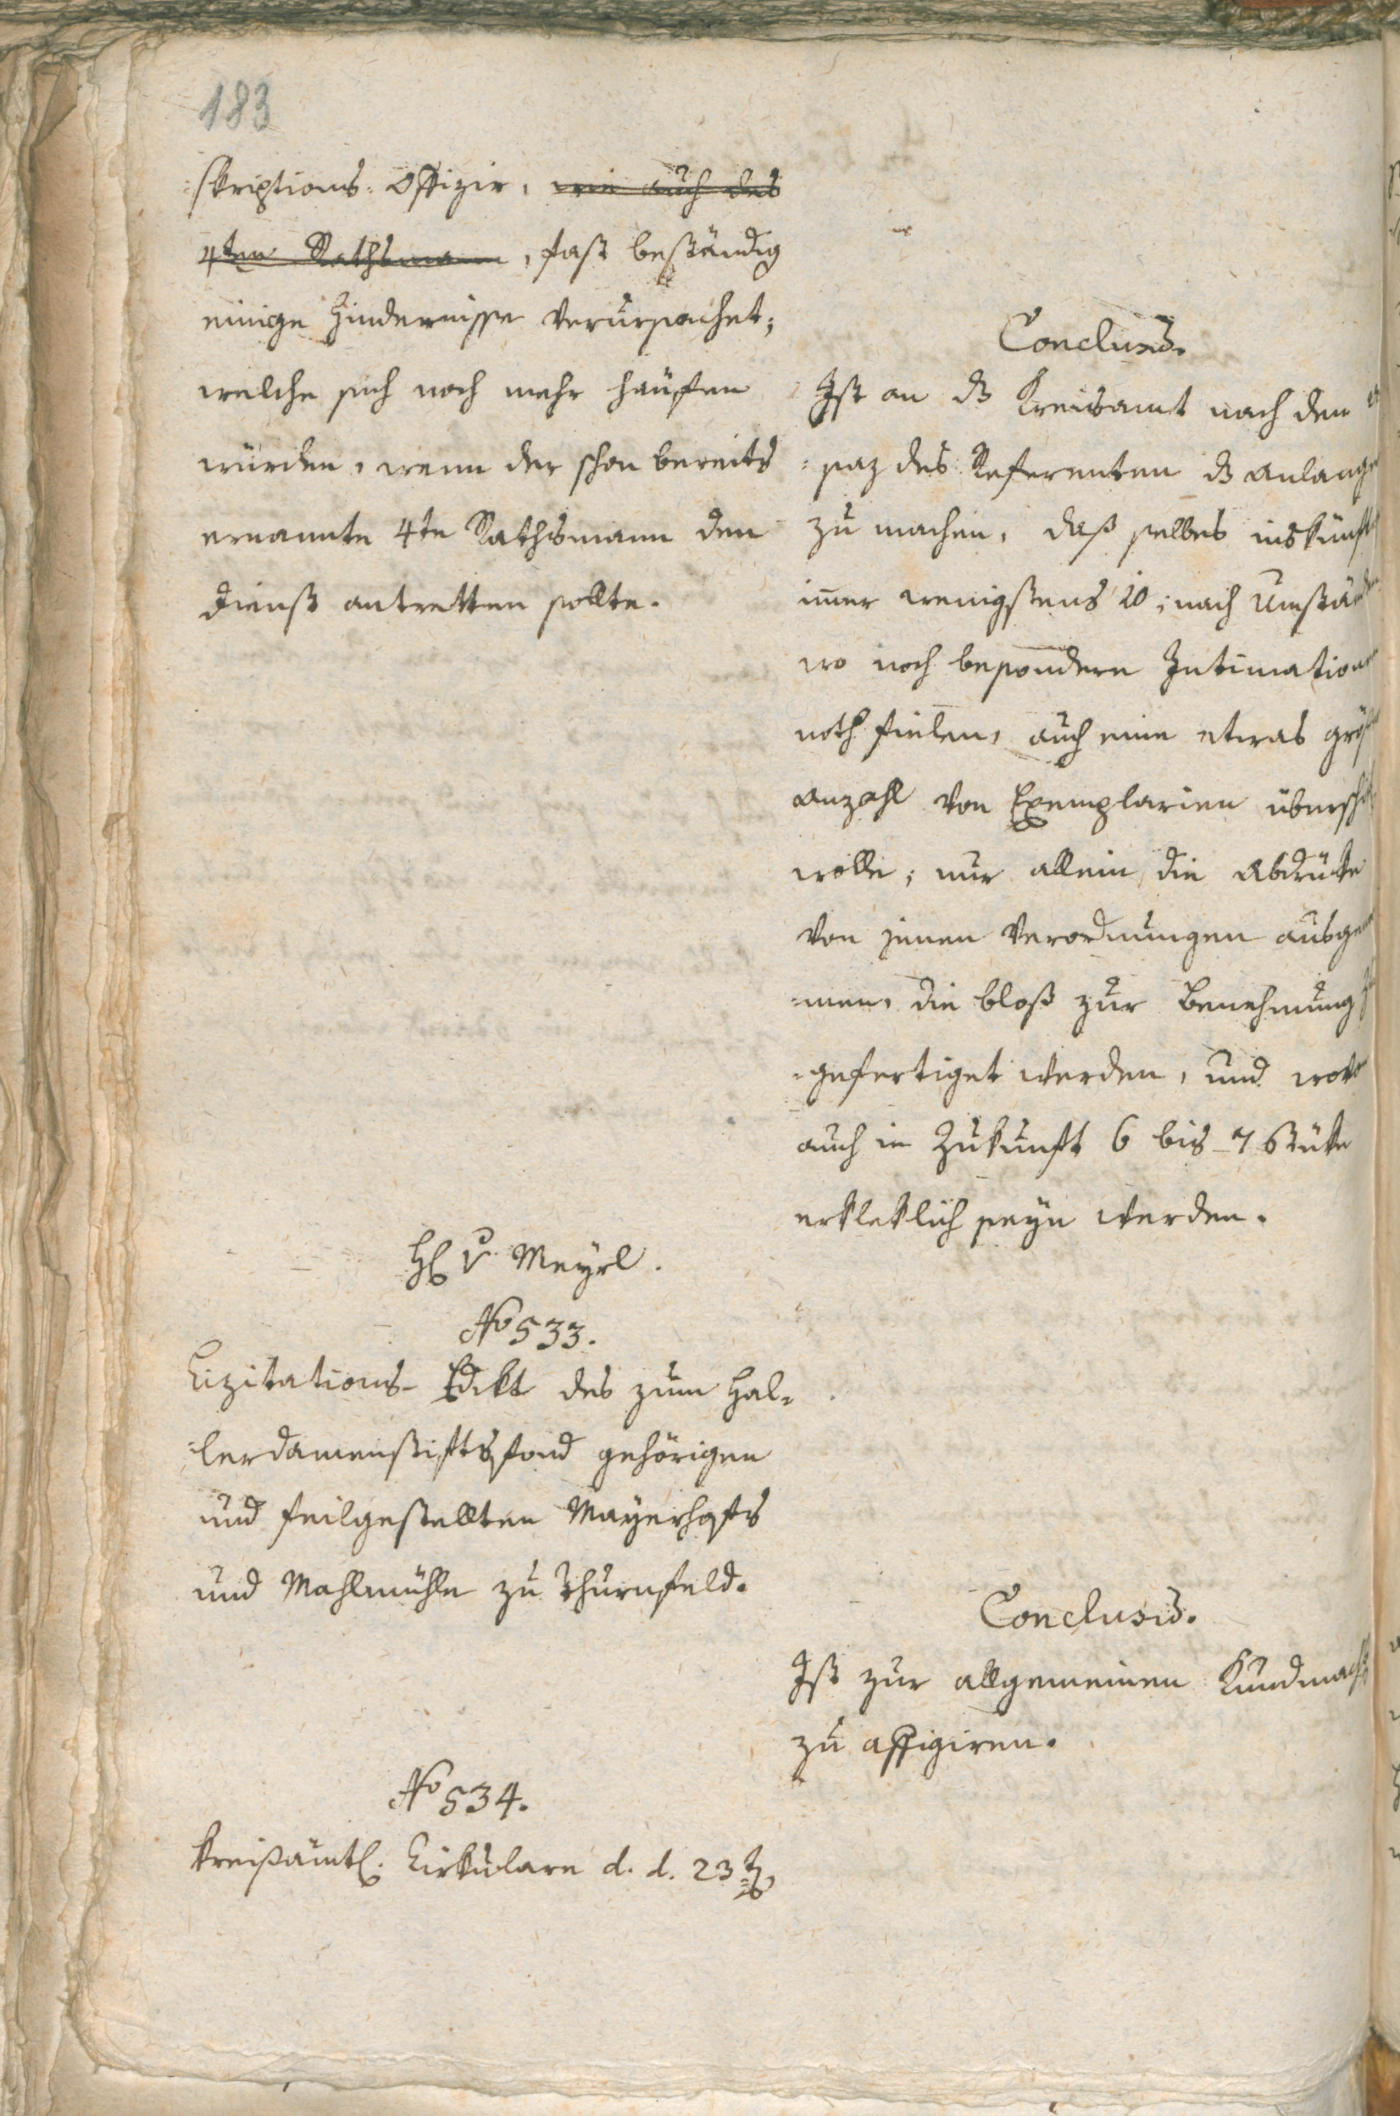 183
skriptions-Offizir, wie auch des
4ten Rathsmann, fast beständig
einige Hindernisse verursachet;
welche sich noch mehr häuffen
würden, wenn der schon bereits
ernannte 4te Rathsmann den
Dienst antretten sollte.
Conclusũ.
Ist an dz Kreisamt nach dem
saz des Referenten dz Anlangen
zu machen, daß selbes inskünft
im̅er wenigstens 10, nach Umstän
wo noch besondere Intimation
noth fielen, auch eine etwas grö
Anzahl von Exemplarien übersch
wolle; nur allein die Abdrücke
von jenen Verordnungen ausge
-men, die bloß zur Benehmung
-gefertiget werden, und wovo
auch in Zukunft 6 bis 7 Stüke
erkleklich seyn werden.
H v Meyrl.
No 533.
Lizitations-Edikt des zum Hal-
lerdamenstiftsfond gehörigen
und feilgestellten Mayerhofs
und Mahlmühle zu Thurnfeld.
Conclusũ.
Ist zur allgemeinen Kundmach
zu affigiren.
No 534.
Kreißämtl. Cirkulare d. d. 23